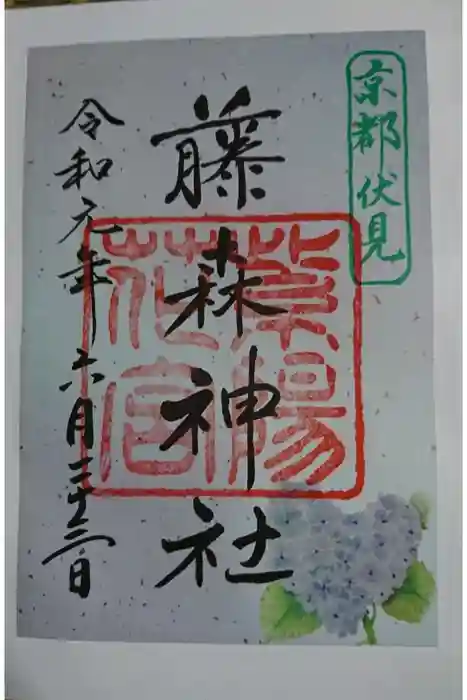 京都伏見
藤森神社
紫陽花宮
令和元年六月二十三日